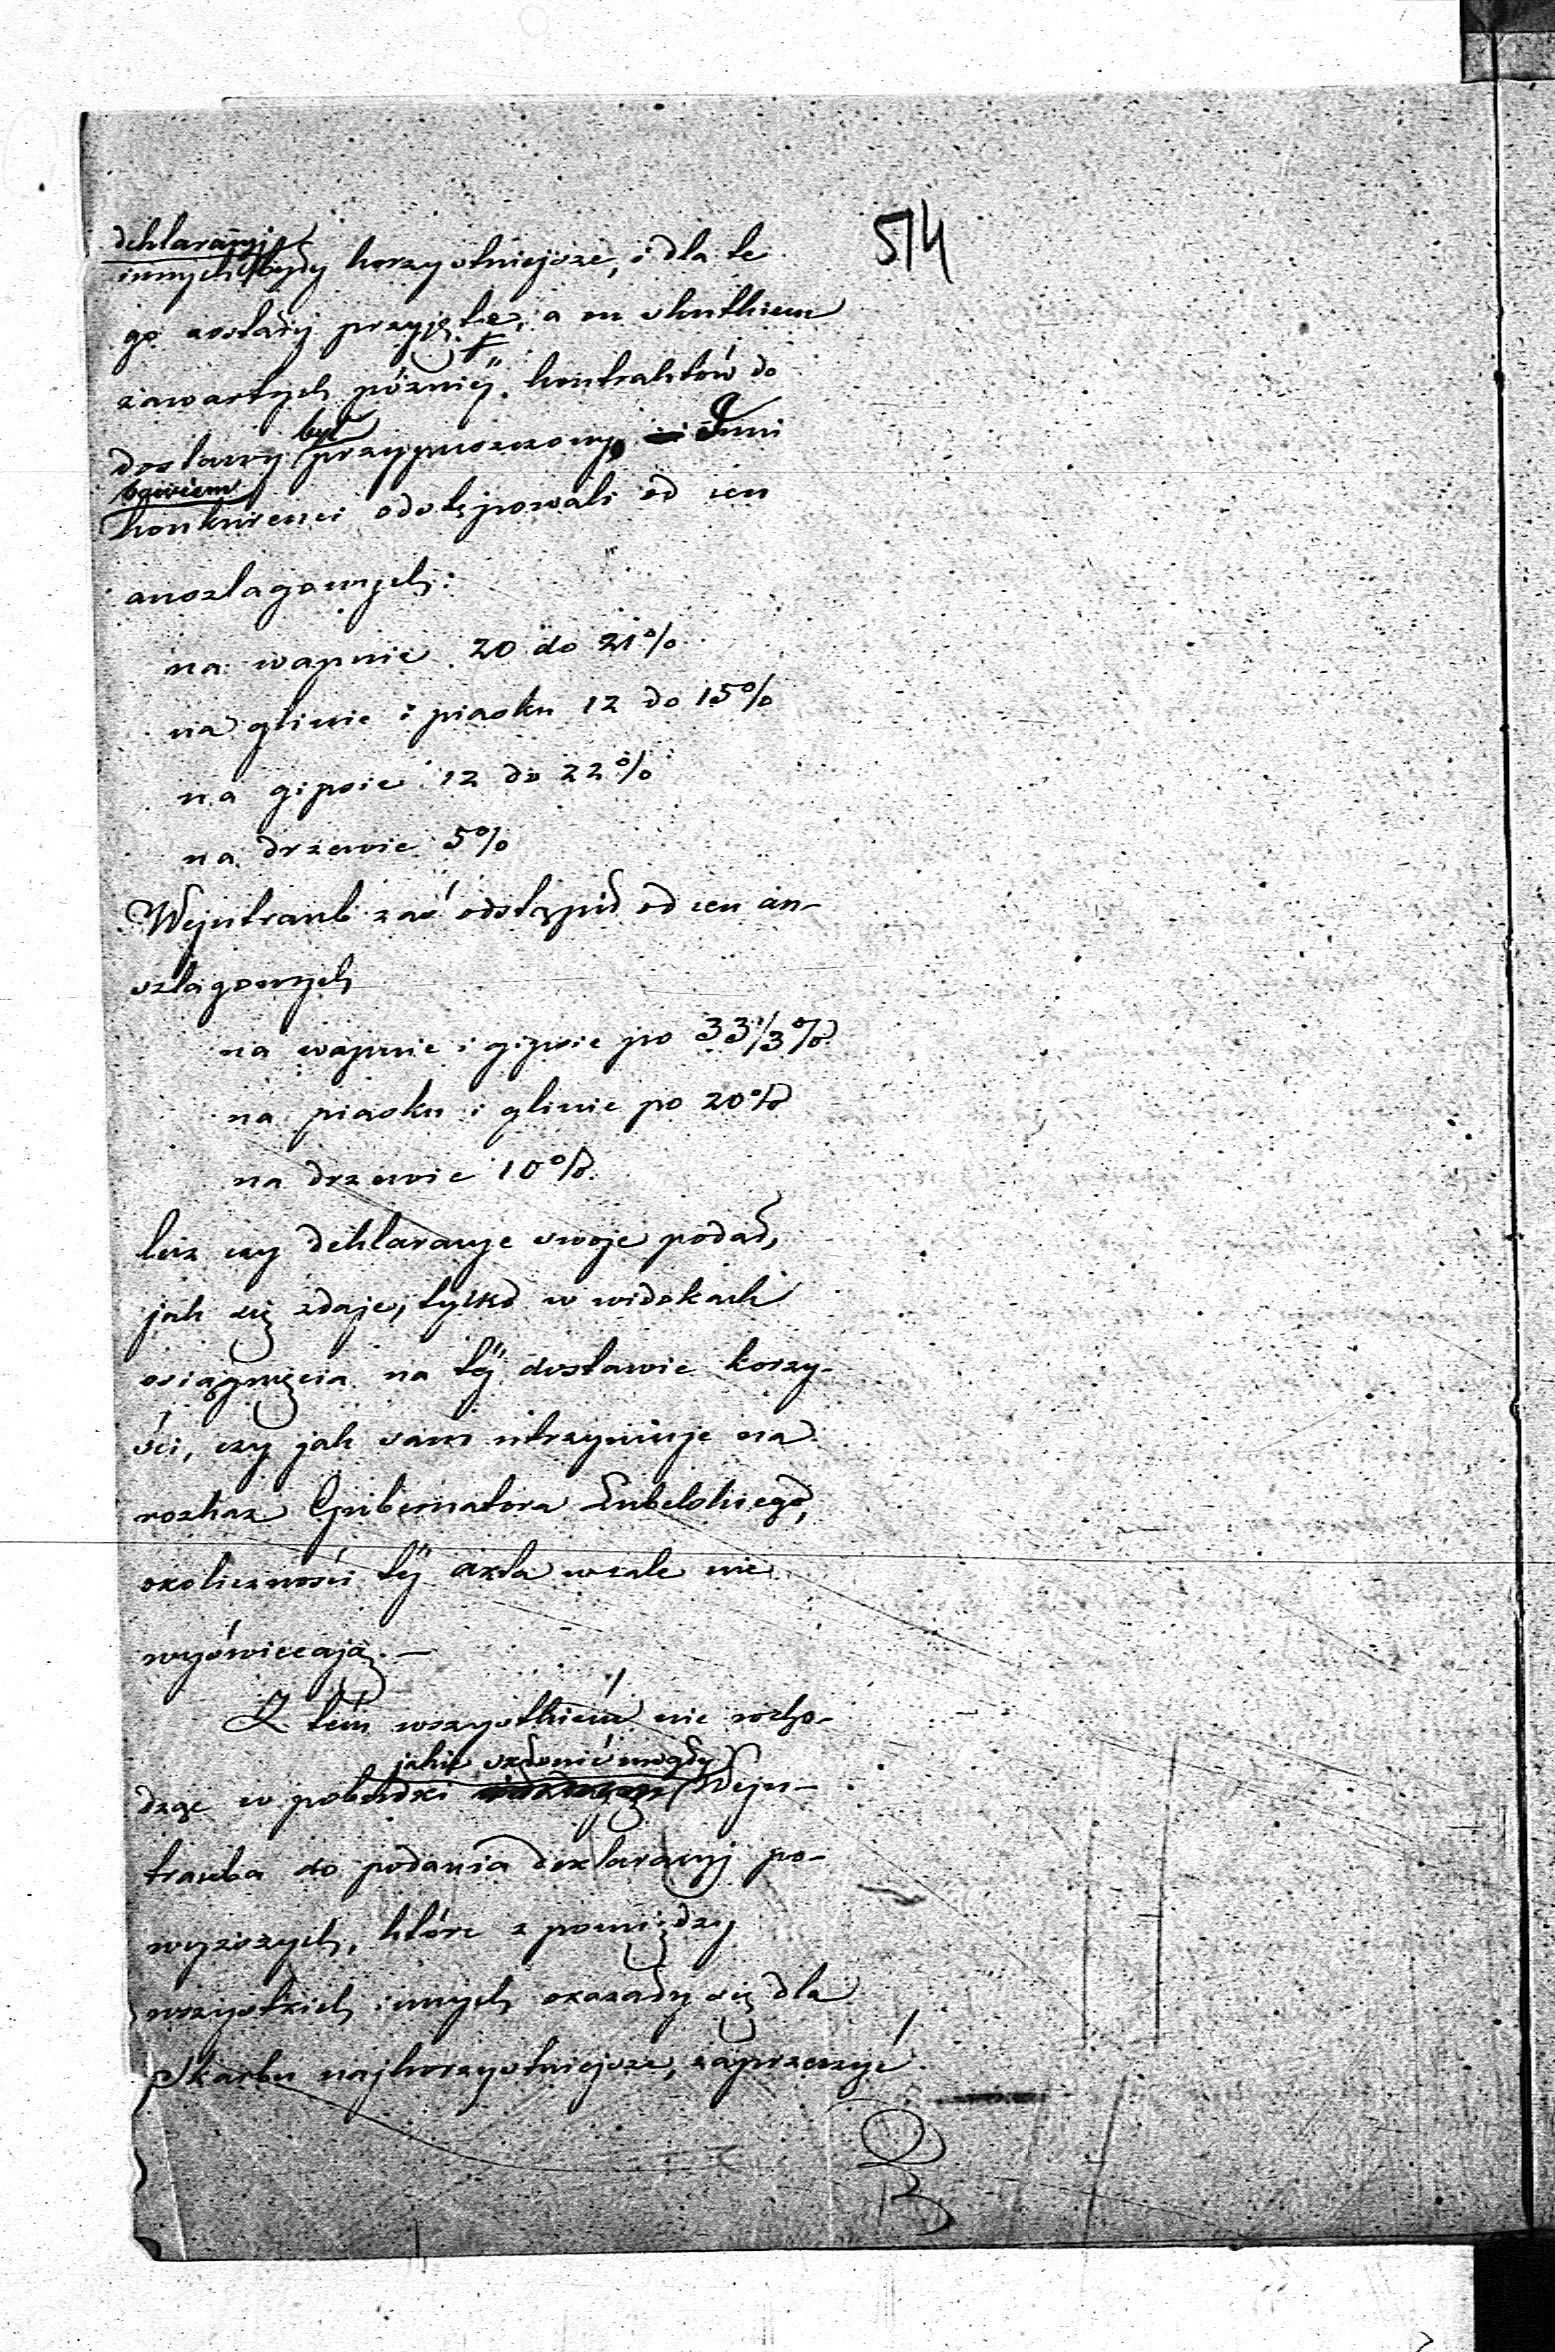 514
deklaracyje
innych były korzystniejsze, i dla te
go zostały przyjęte, a on skutkiem
zawartych później kontraktów do
był
dostawy przypuszczony, Inni
bowiem
konkurenci odstępowali od cen
anszlagowych:
na wapnie 20 do 21%
na glinie i piasku 12 do 15%
na gipsie 12 do 22%
na drzewie 5%
Wejntraub zaś odstąpił od cen an-
szlagowych
na wapnie i gipsie po 33 1/3 %
na piasku i glinie po 20%
na drzewie 10%.
lecz czy deklaracye swoje podał,
jak się zdaje, tylko w widokach
osiągnięcia na téj dostawie korzy-
ści, czy jak sam utrzymuje na
rozkaz Gubernatora Lubelskiego,
okoliczności téj akta wcale nie
wyświecają. —
Z tém wszystkiém nie wcho-
jakie skłonić mogły
dząc w pobudki Wejn-
trauba do podania deklaracyj po-
wyższych, które z pomiędzy
wszystkich innych okazały się dla
Skarbu najkorzystniejsze, zaprzeczyć